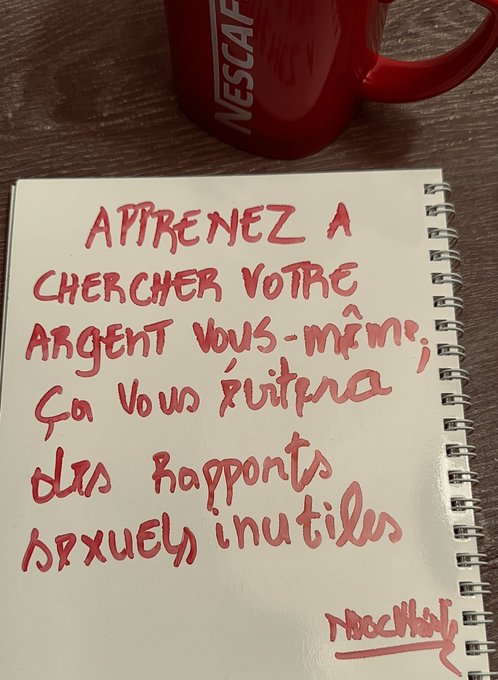 NESCAF
APPRENEZ A
CHERCHER VOTRE
ARGENT VOUS-même;
ça vous évitera
des Rapports
sexuels inutiles